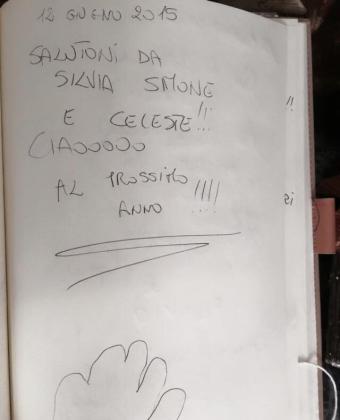 12 GIUGNO 2015
SALUTONI DA
SILVIA SIMONE
E CELESTE!!!
CIAOOOOO
AL PROSSIMO
ANNO !!!!
!!
zi